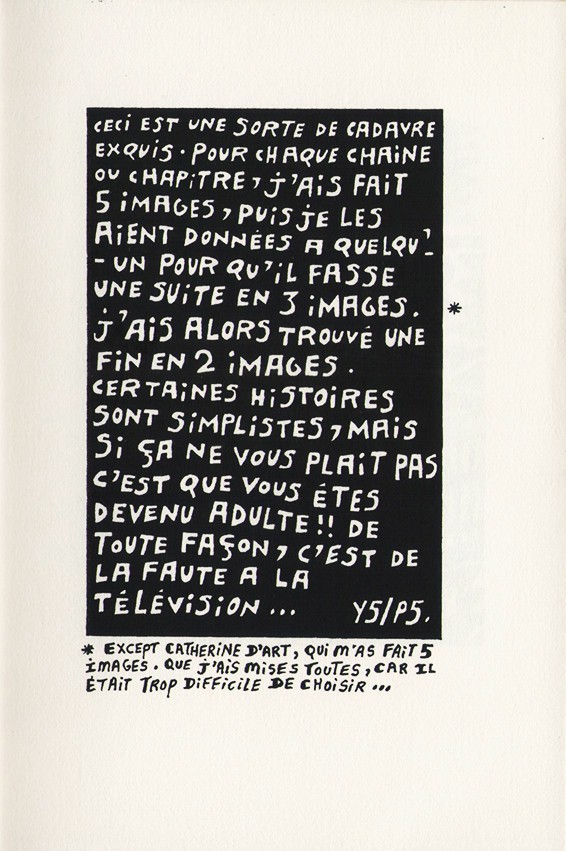 CECI EST UNE SORTE DE CADAVRE
EXQUIS. POUR CHAQUE CHAINE
OU CHAPITRE, J'AIS FAIT
5 IMAGES, PUIS JE LES
AIENT DONNÉES A QUELQU'-
- UN POUR QU'IL FASSE
UNE SUITE EN 3 IMAGES. *
J'AIS ALORS TROUVÉ UNE
FIN EN 2 IMAGES.
CERTAINES HISTOIRES
SONT SIMPLISTES, MAIS
SI ÇA NE VOUS PLAIT PAS
C'EST QUE VOUS ÉTES
DEVENU ADULTE!! DE
TOUTE FAÇON, C'EST DE
LA FAUTE A LA
TÉLÉVISION... Y5/P5.
* EXCEPT CATHERINE D'ART, QUI M'AS FAIT 5
IMAGES. QUE J'AIS MISES TOUTES, CAR IL
ÉTAIT TROP DIFFICILE DE CHOISIR...